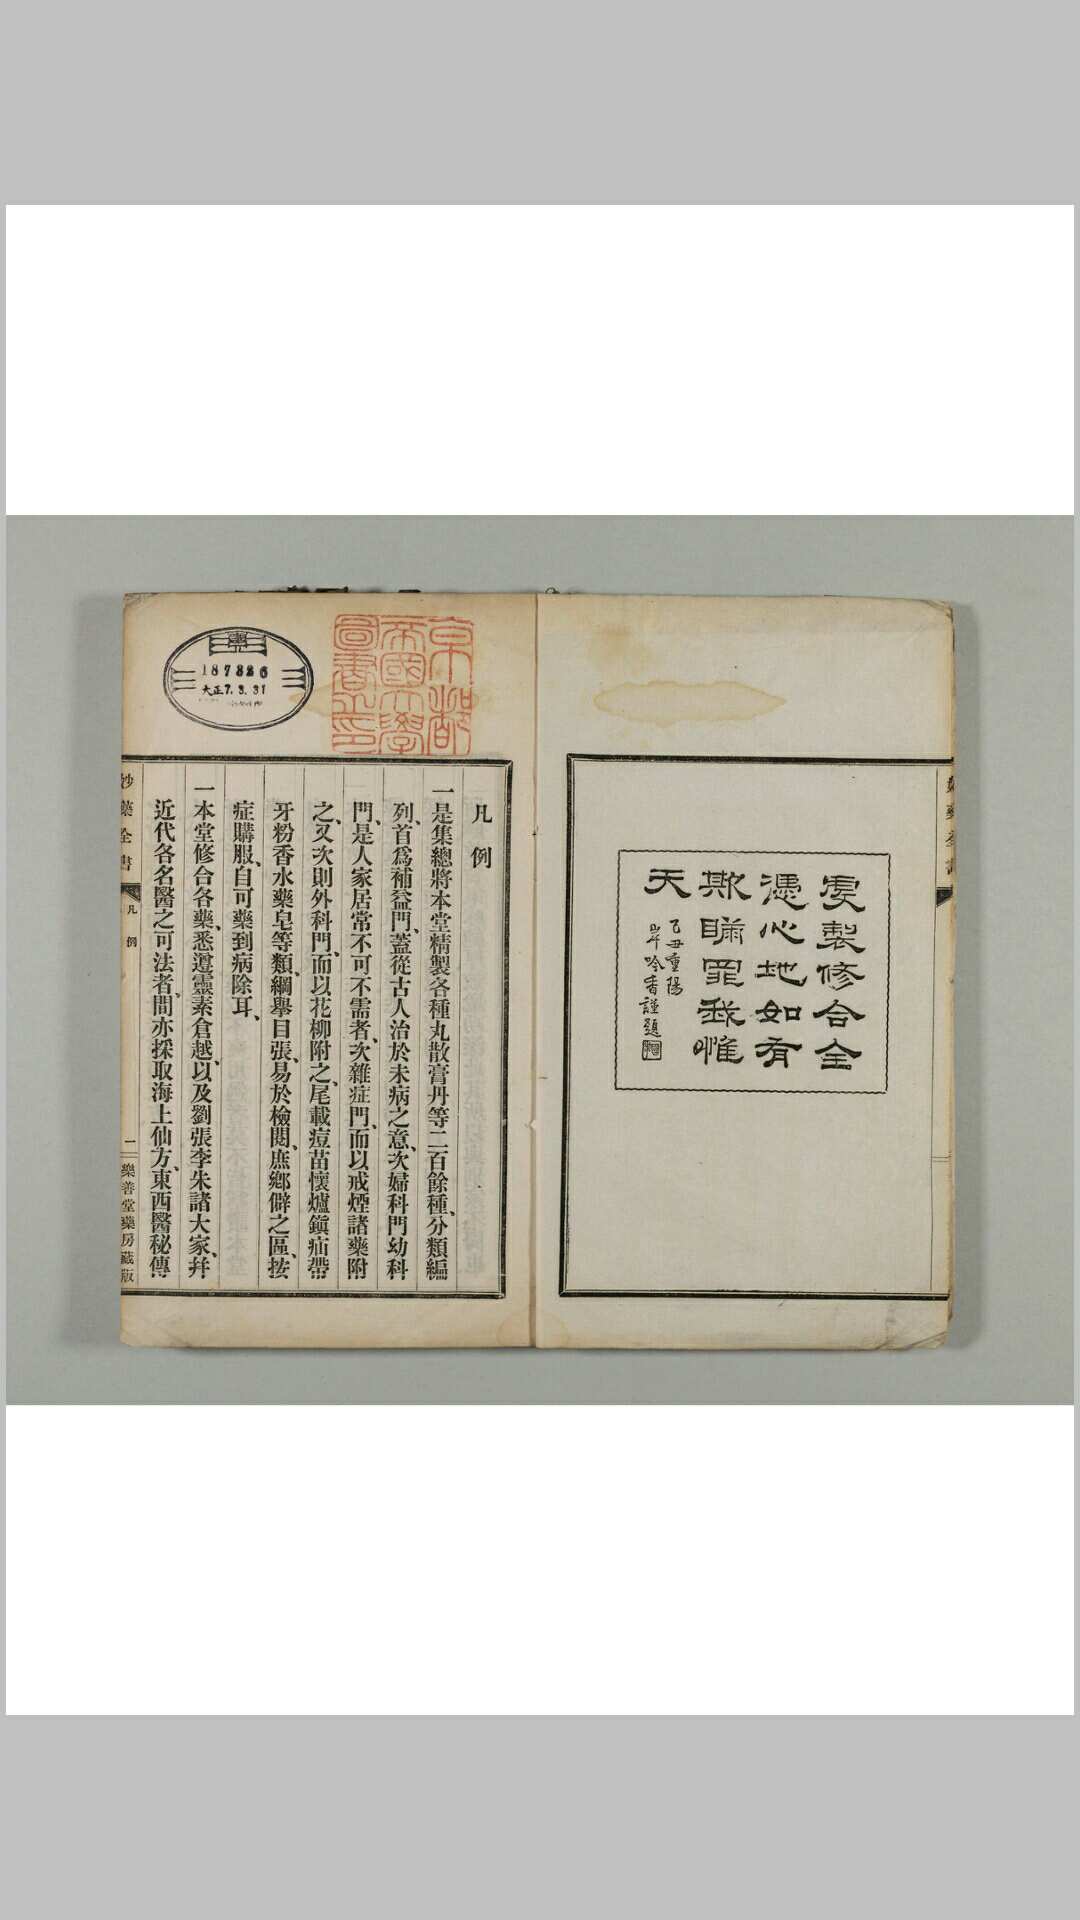 虔製修合全
憑心地如有
欺瞞罪我惟
天
乙丑重陽
岸吟香謹題
京都
帝國大學
圖書之印
187826
大正7.3.31
凡例
一是集總將本堂精製各種丸散膏丹等二百餘種、分類編
列、首爲補益門、蓋從古人治於未病之意、次婦科門幼科
門、是人家居常不可不需者、次雜症門、而以戒煙諸藥附
之、又次則外科門、而以花柳附之、尾載痘苗懷爐鎭疝帶
牙粉香水藥皂等類、綱擧目張、易於檢閱、庶鄕僻之區、按
症購服、自可藥到病除耳、
一本堂修合各藥、悉遵靈素倉越、以及劉張李朱諸大家、幷
近代各名醫之可法者、間亦採取海上仙方、東西醫秘傳
妙藥全書
凡例
一
樂善堂藥房藏版